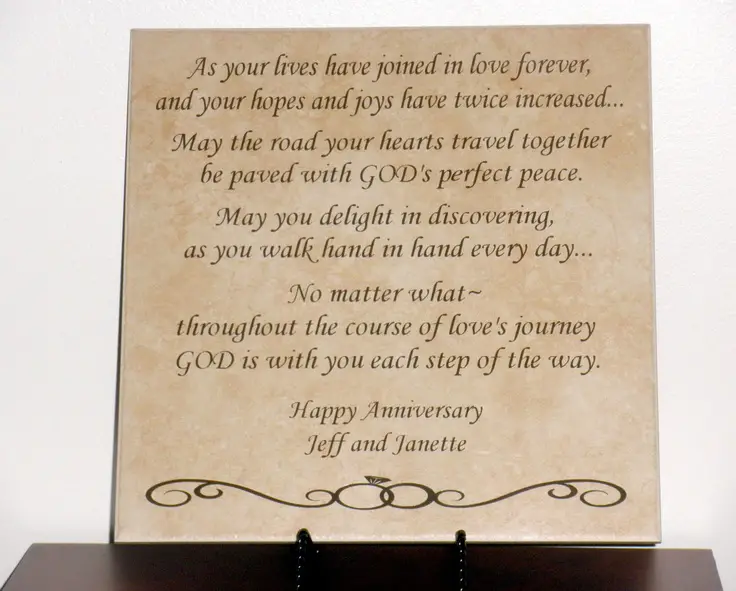 As your lives have joined in love forever,
and your hopes and joys have twice increased...
May the road your hearts travel together
be paved with GOD's perfect peace.
May you delight in discovering,
as you walk hand in hand every day...
No matter what~
throughout the course of love's journey
GOD is with you each step of the way.
Happy Anniversary
Jeff and Janette